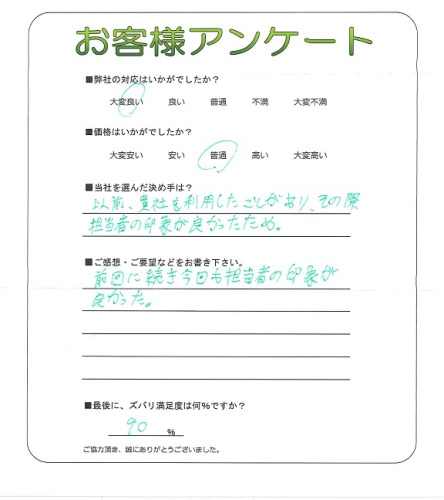 お客様アンケート
■弊社の対応はいかがでしたか？
大変良い 良い 普通 不満 大変不満
■価格はいかがでしたか？
大変安い 安い 普通 高い 大変高い
■当社を選んだ決め手は？
以前、貴社を利用したことがおり、その際
担当者の印象が良かったため。
■ご感想・ご要望などをお書き下さい。
前回に続き今回も担当者の印象が
良かった。
■最後に、ズバリ満足度は何%ですか？
90 %
ご協力頂き、誠にありがとうございました。